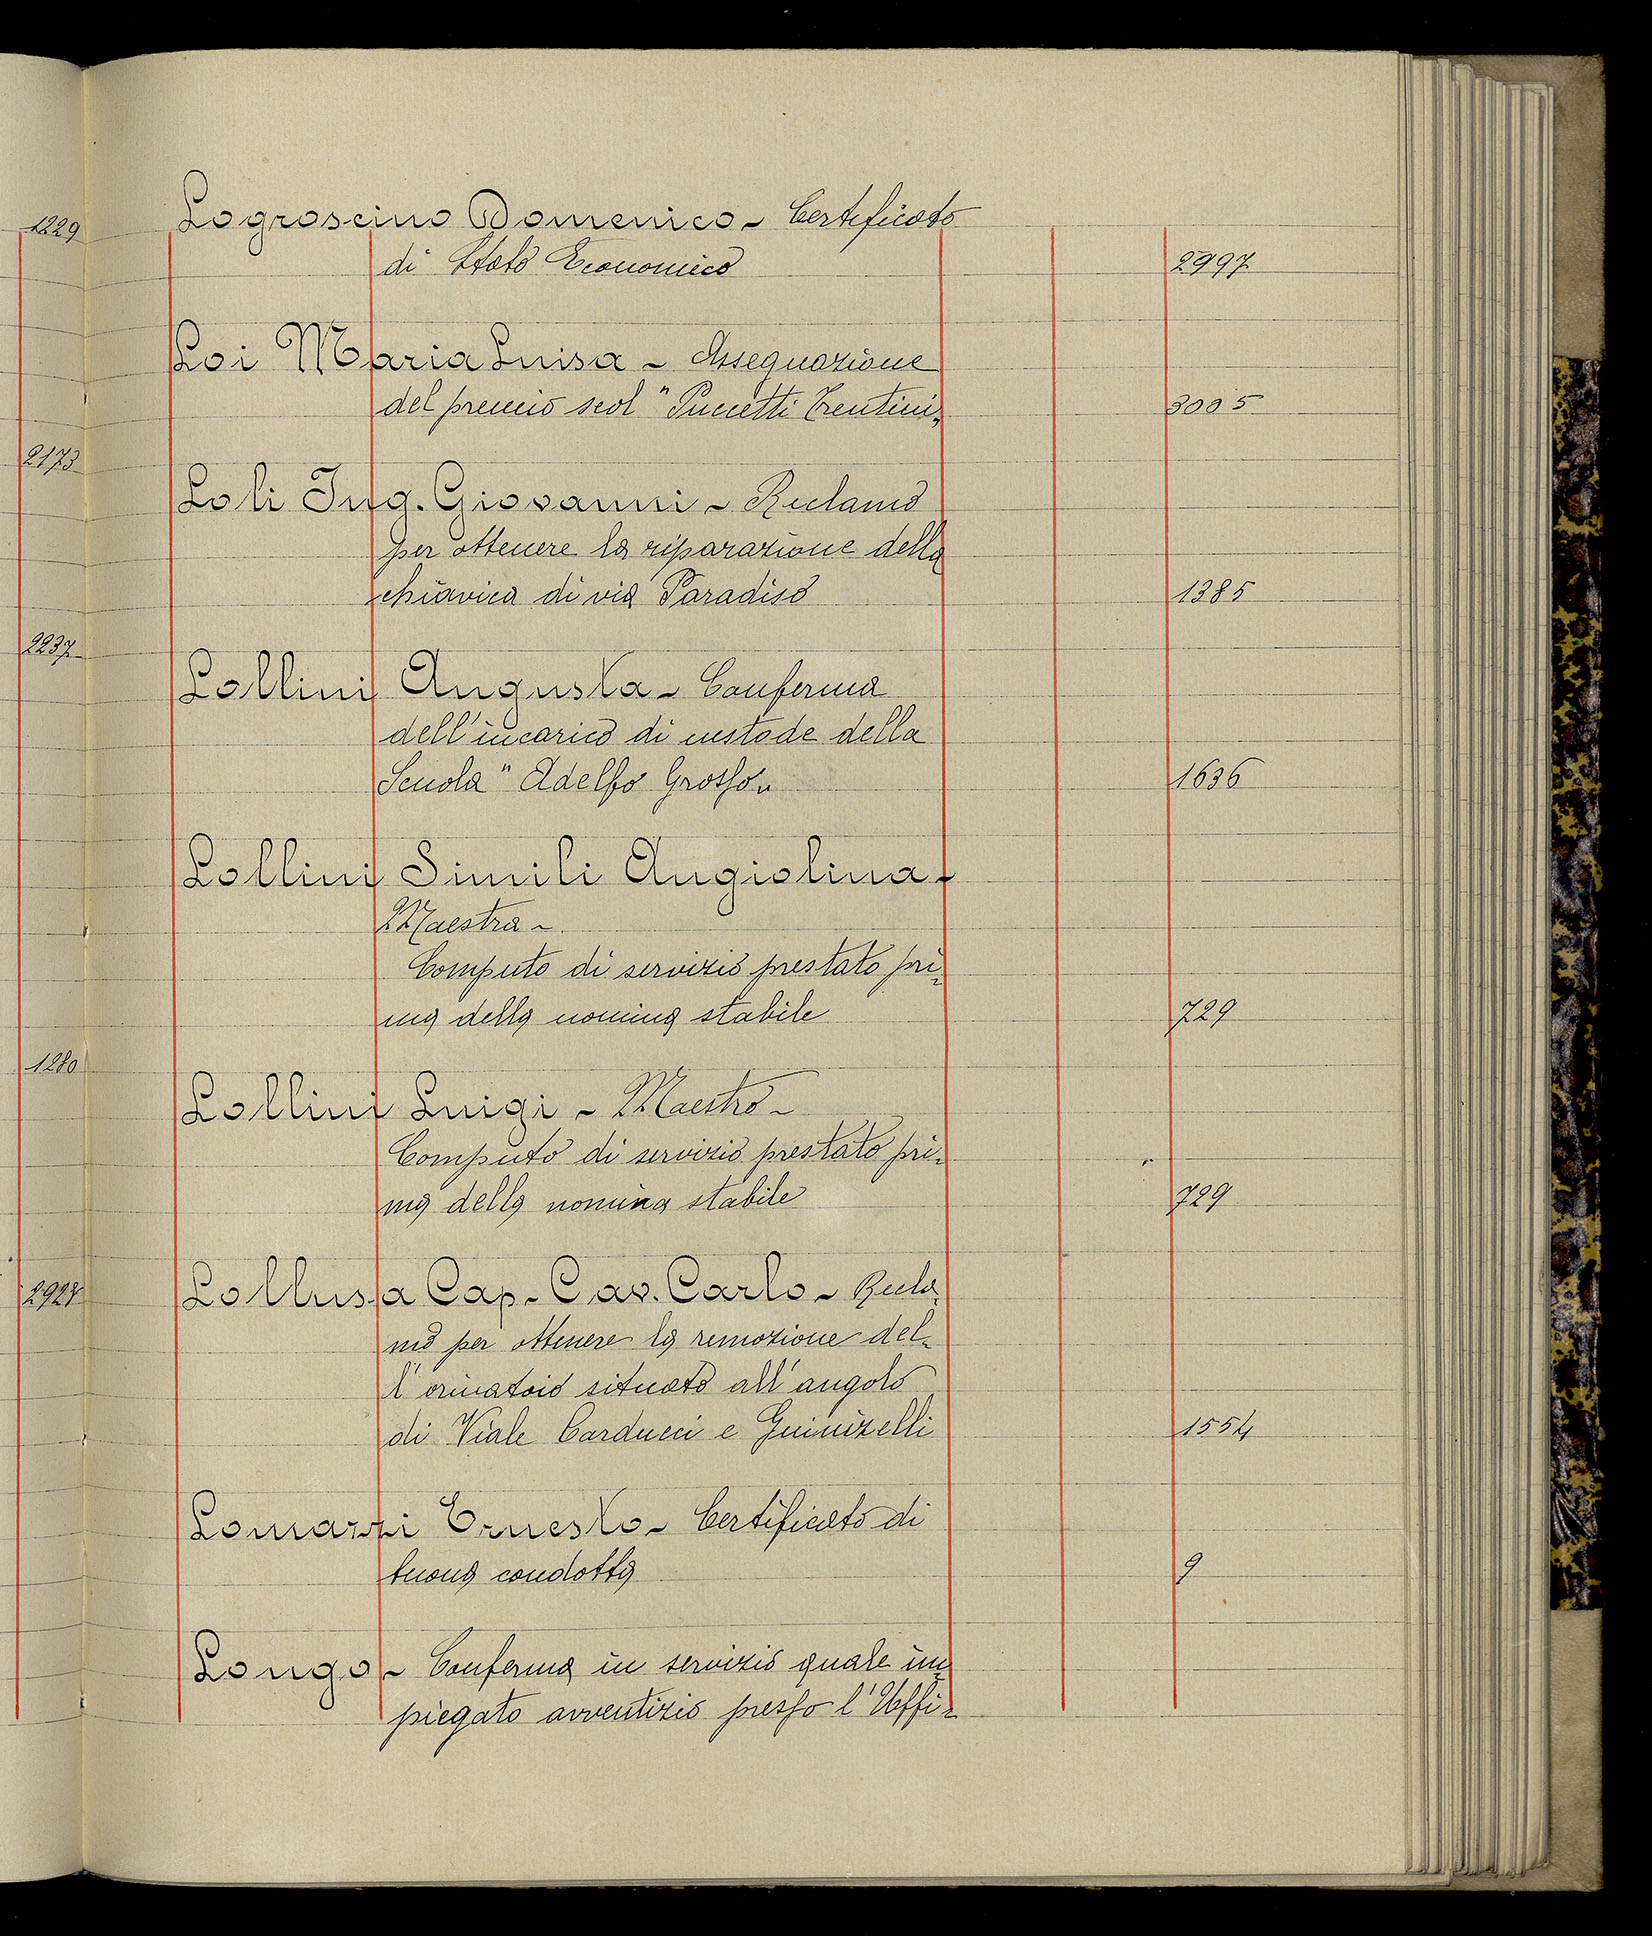 1229
2173
2237
1280
2928
Logroscino Domenico - Certificato
di Stato Economico 2997
Loi Maria Luisa - Assegnazione
del premio scol "Puccetti Trentini" 3005
Loli Ing. Giovanni - Reclamo
per ottenere la riparazione della
chiavica di via Paradiso 1385
Lollini Augusta - Conferma
dell'incarico di custode della
Scuola "Adelfo Grosso" 1636
Lollini Simili Angiolina -
Maestra -
Computo di servizio prestato pri=
ma della nomina stabile 729
Lollini Luigi - Maestro -
Computo di servizio prestato pri=
ma della nomina stabile 729
Lollusa Cap. Cav. Carlo - Recla=
mo per ottenere la remozione del=
l'orinatoio situato all'angolo
di Viale Carducci e Guinizelli 1554
Lomazzi Ernesto - Certificato di
buona condotta 9
Longo - Conferma in servizio quale im=
piegato avventizio presso l'Uffi=